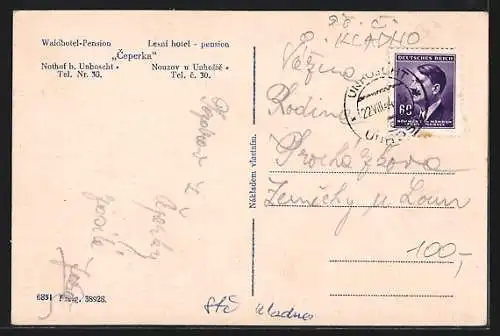 Waldhotel-Pension
Lesní hotel - pension
„Čeperka"
Nothof b. Unhoscht •
Tel. Nr. 30.
Nouzov u Unhoště •
Tel. č. 30.
Pozdrav z
Čeperky
6831 Fotog. 38928.
Nákladem vlastním.
P. KLADNO
DEUTSCHES REICH
60
BÖHMEN U. MÄHREN
ČECHY A MORAVA
UNHOSCHT
22.VIII.
UNHOŠŤ
Vážená
Rodina
Procházkova
u Loun
100,-